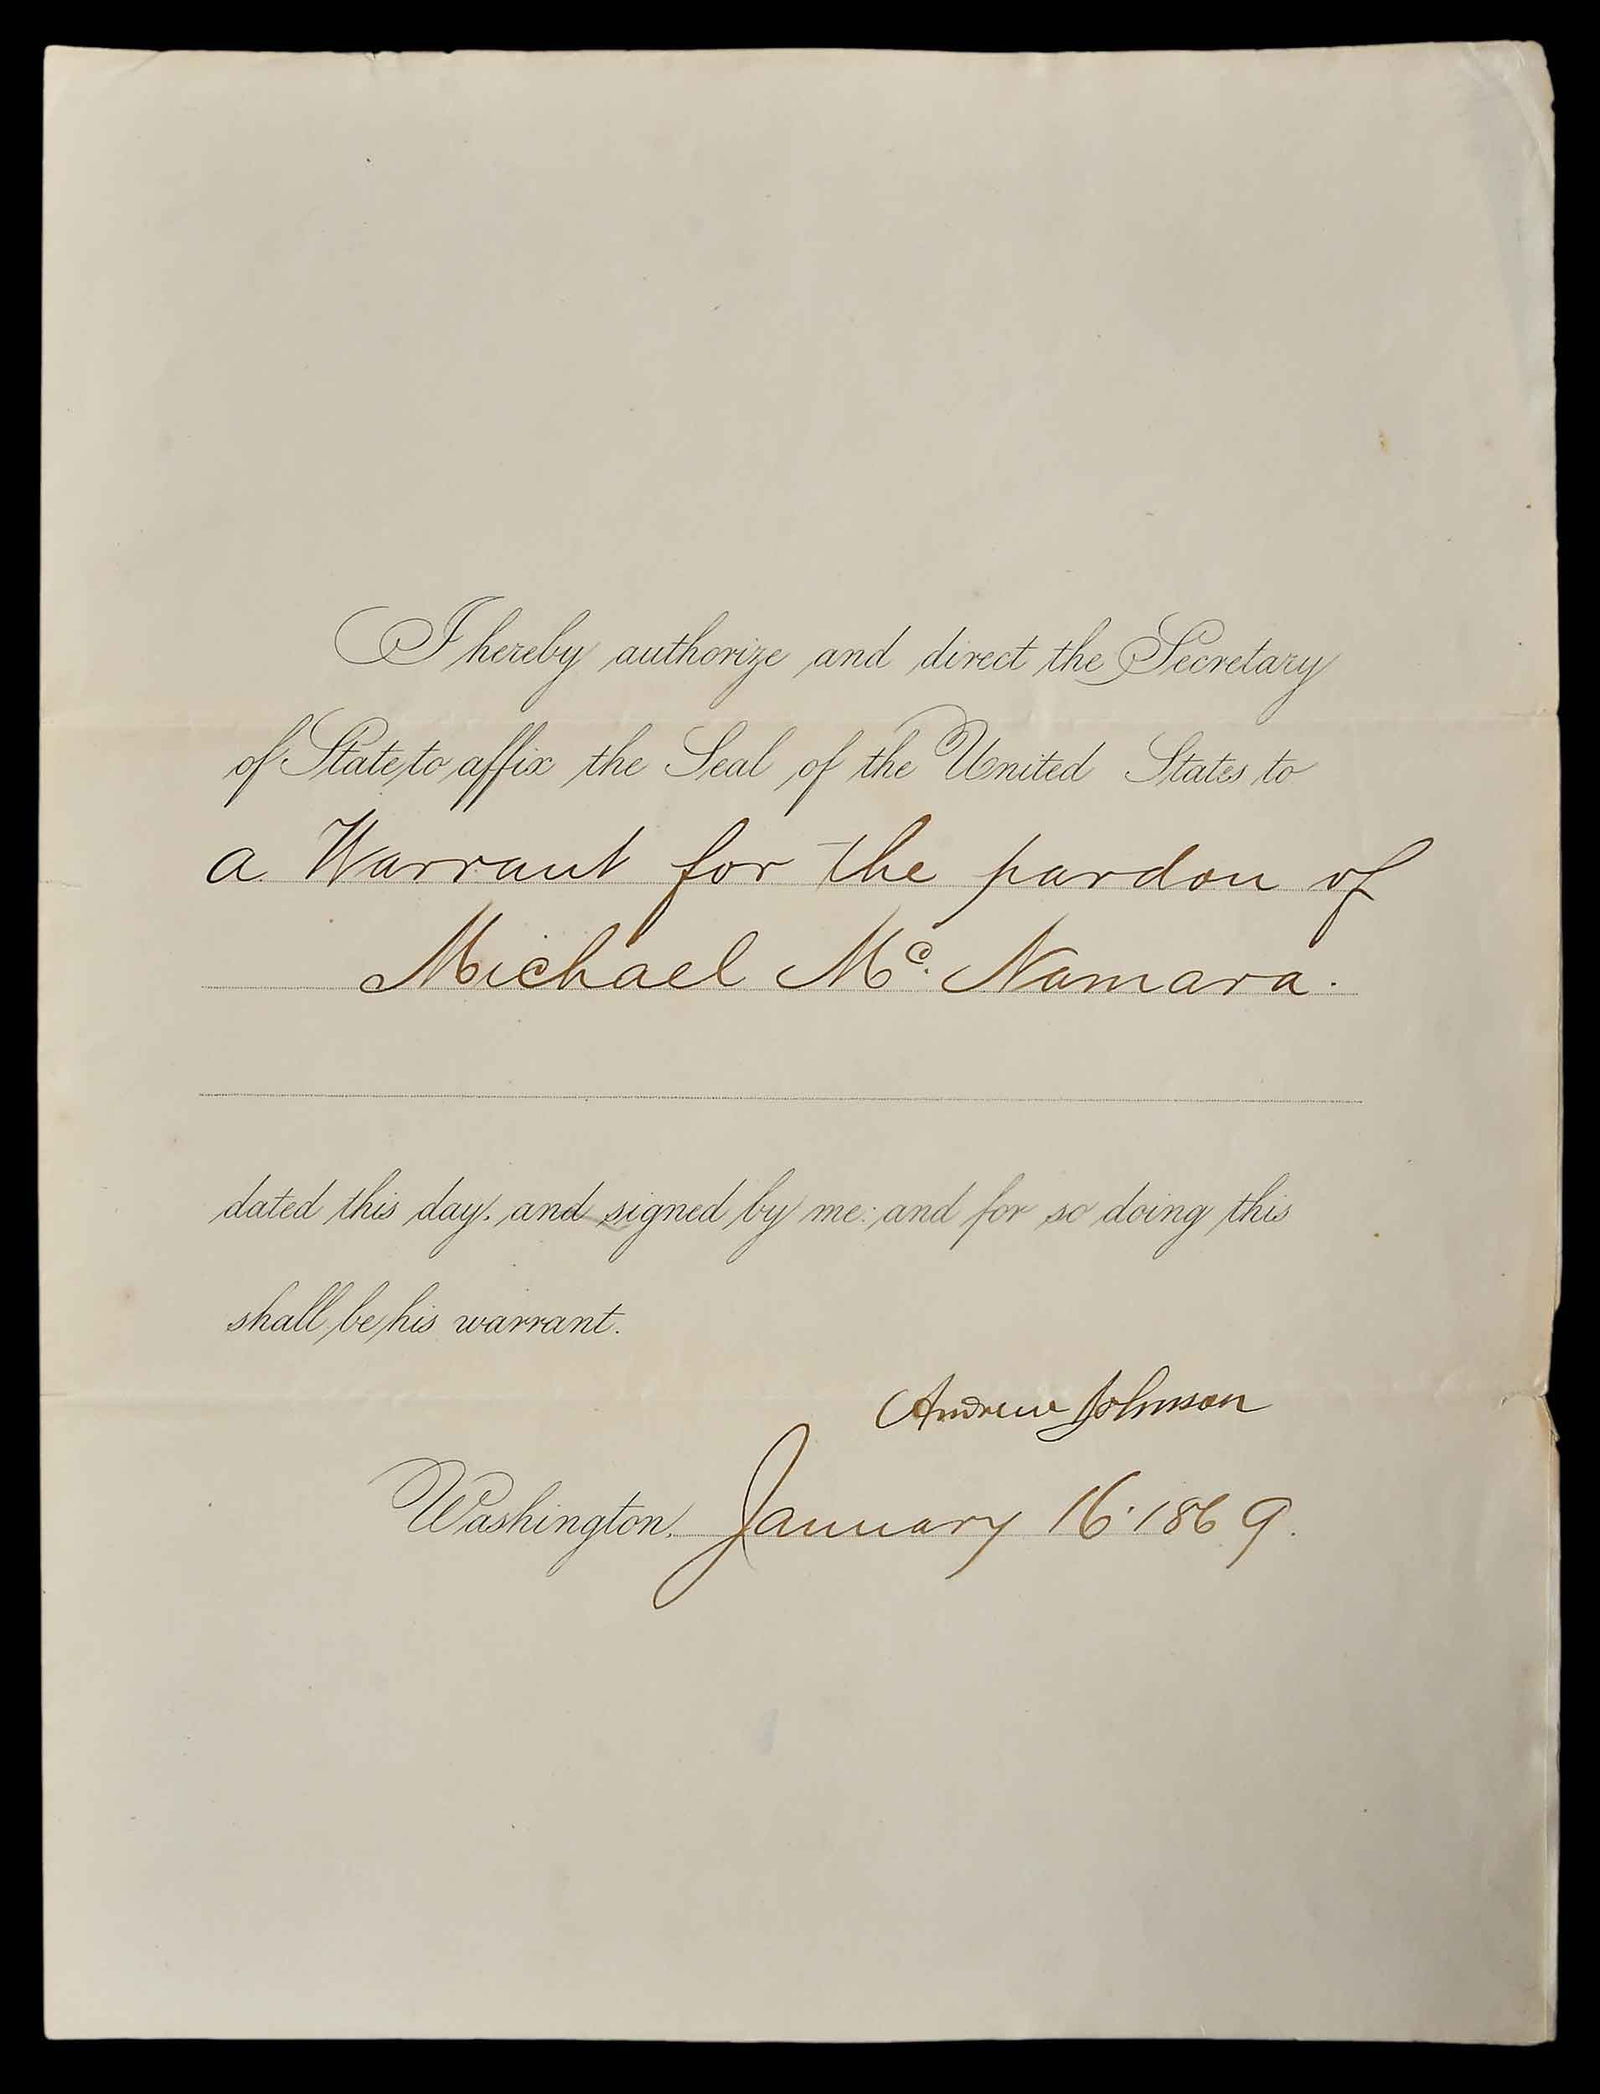 I hereby authorize and direct the Secretary
of State to affix the Seal of the United States to
a Warrant for the pardon of
Michael Mc. Namara.
dated this day, and signed by me: and for so doing this
shall be his warrant.
Andrew Johnson
Washington, January 16. 1869.